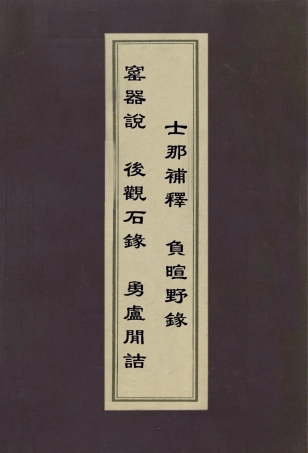 士那補釋　負暄野錄
窯器說　後觀石錄　勇盧閒詰